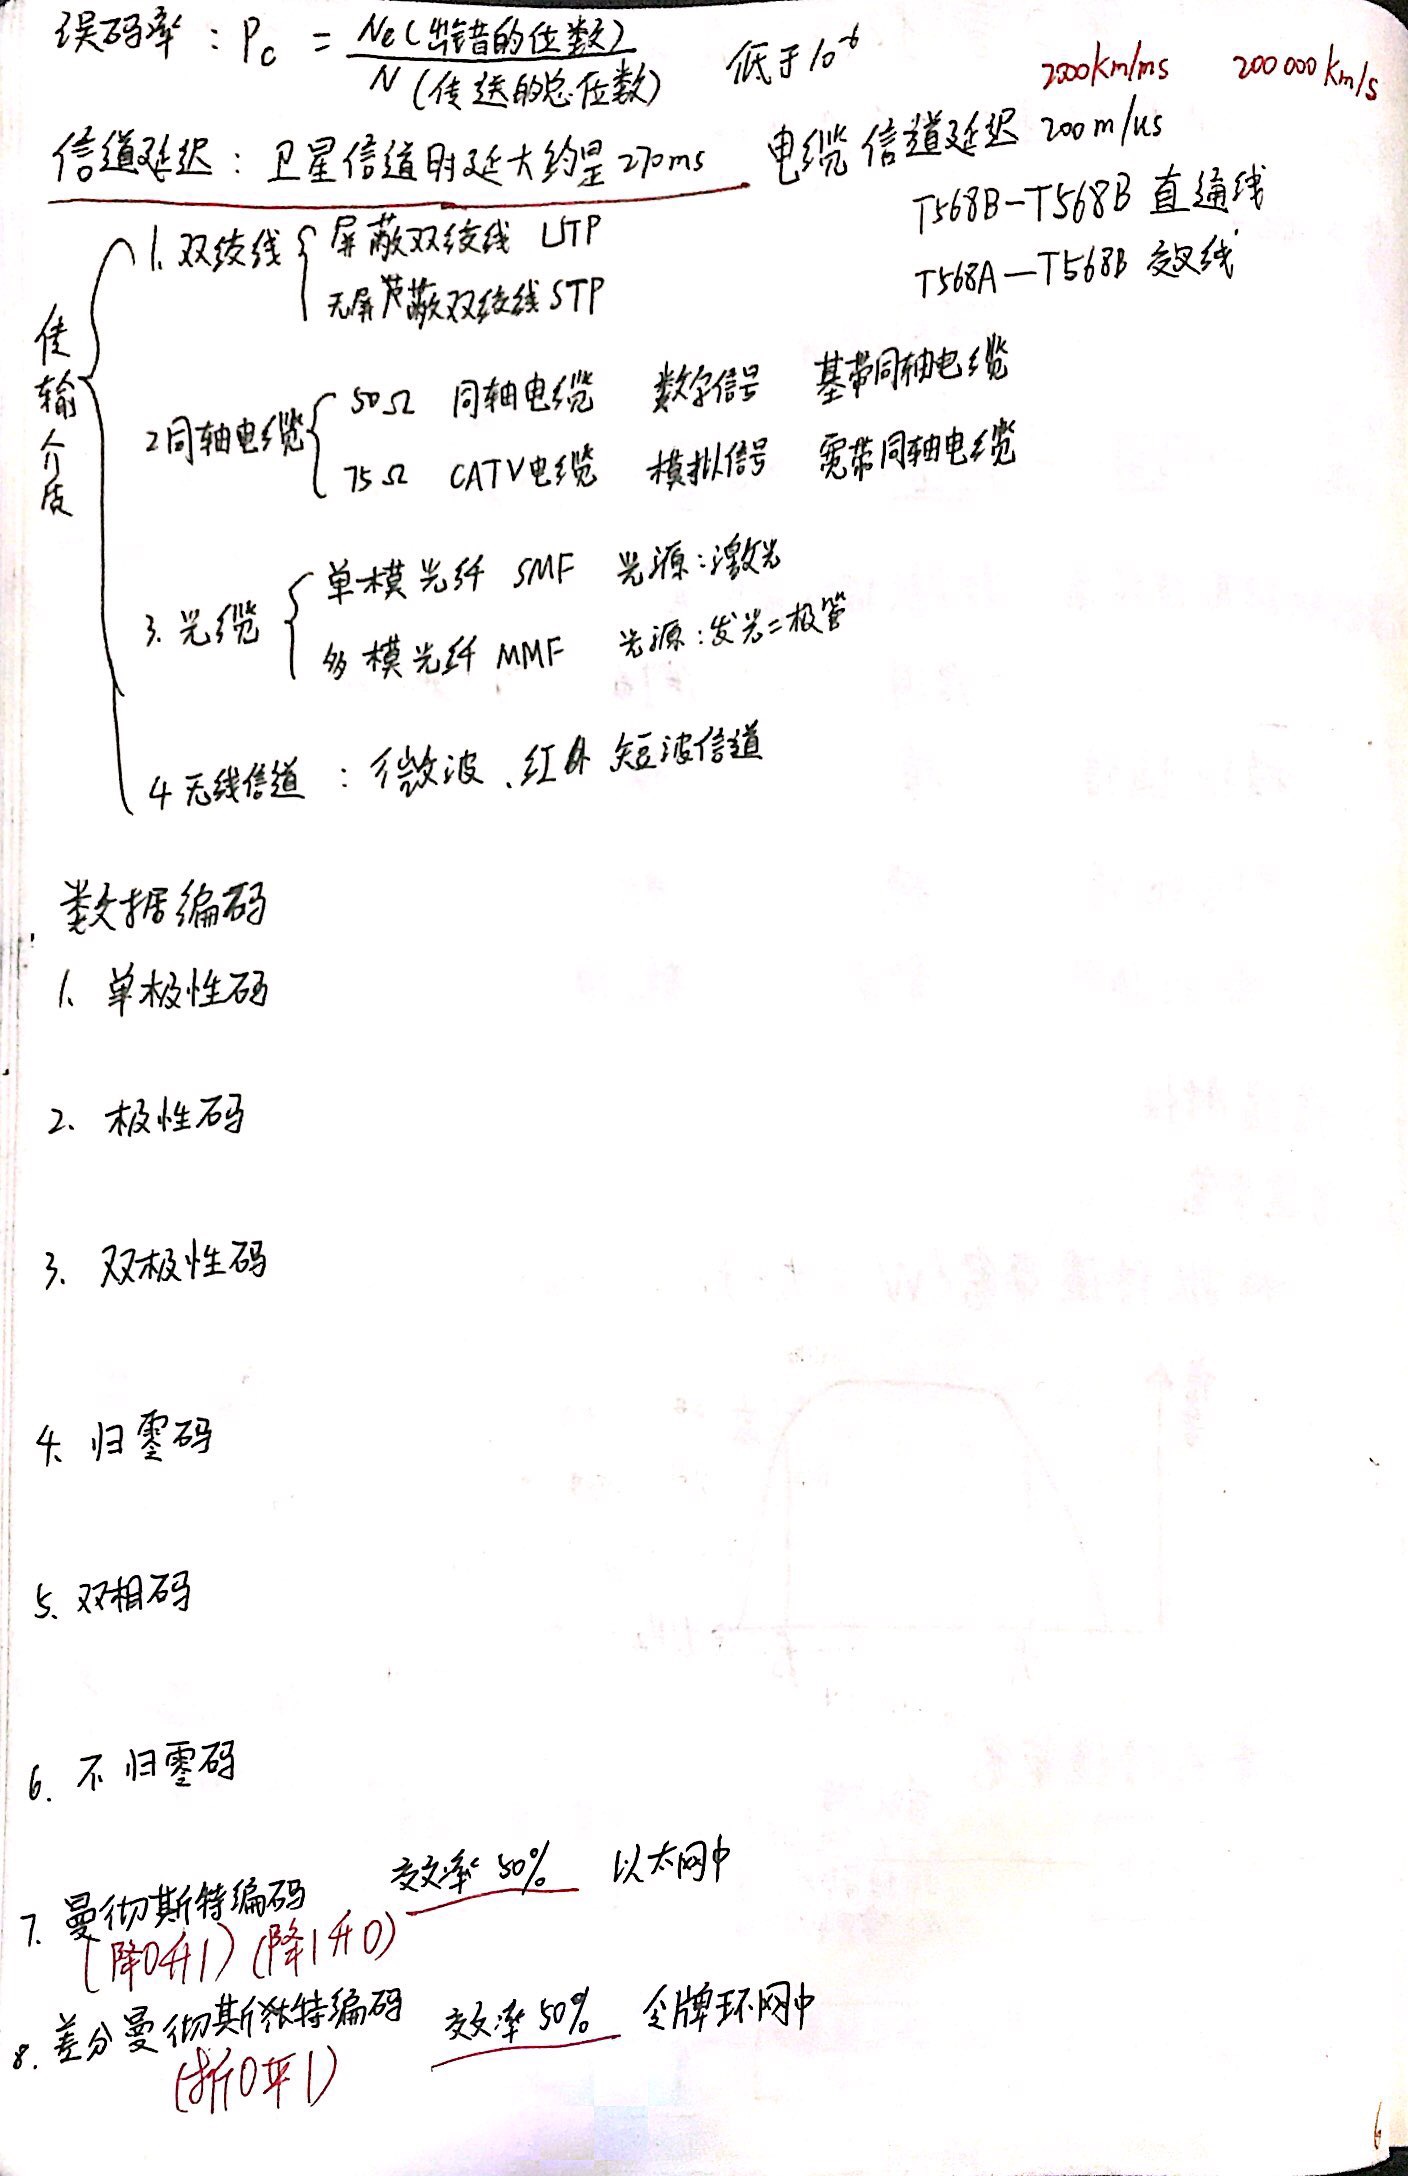 误码率：Pc = Ne(出错的位数) / N(传送的总位数) 低于10⁻⁶
2000km/ms 200000km/s
信道延迟：卫星信道时延大约是270ms 电缆信道延迟 200m/us
T568B-T568B 直通线
T568A—T568B 交叉线
传输介质
1. 双绞线
屏蔽双绞线 UTP
无屏蔽双绞线 STP
2 同轴电缆
50Ω 同轴电缆 数字信号 基带同轴电缆
75Ω CATV电缆 模拟信号 宽带同轴电缆
3. 光缆
单模光纤 SMF 光源：激光
多模光纤 MMF 光源：发光二极管
4 无线信道：微波、红外 短波信道
数据编码
1. 单极性码
2. 极性码
3. 双极性码
4. 归零码
5. 双相码
6. 不归零码
7. 曼彻斯特编码 效率50% 以太网中
(降0升1) (降1升0)
8. 差分曼彻斯特编码 效率50% 令牌环网中
(折0平1)
6